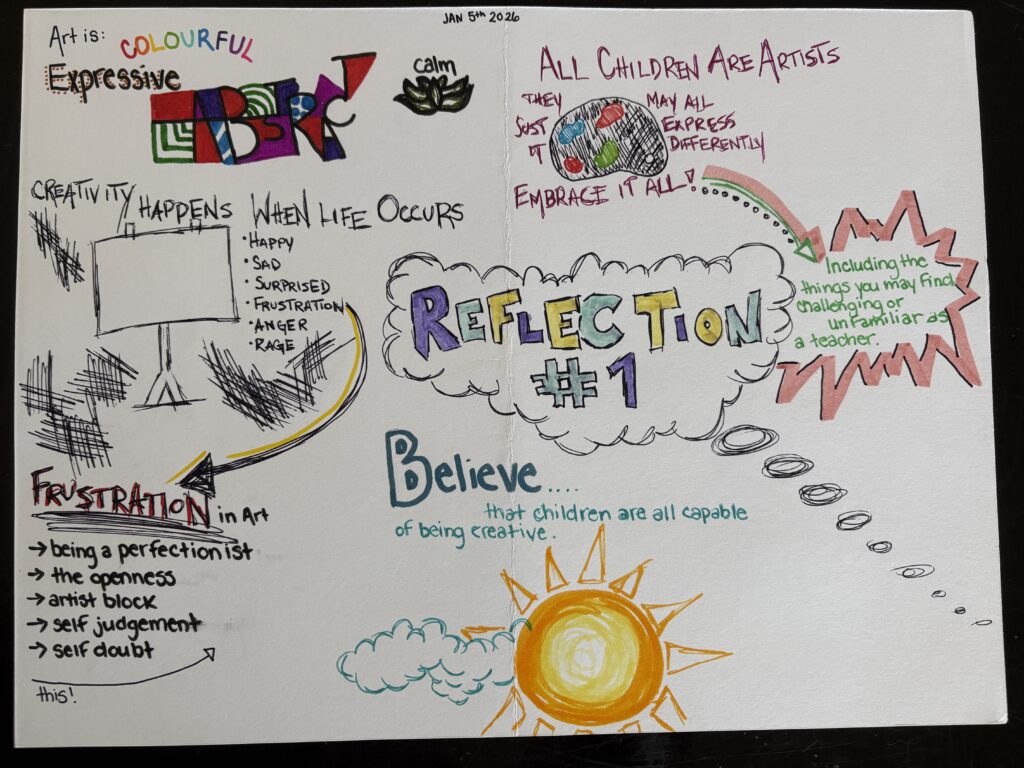 JAN 5th 2026
Art is:
COLOURFUL
Expressive
ABSTRACT
calm
ALL CHILDREN ARE ARTISTS
THEY
JUST
IT
MAY ALL
EXPRESS
DIFFERENTLY
EMBRACE IT ALL!
CREATIVITY HAPPENS WHEN LIFE OCCURS
• HAPPY
• SAD
• SURPRISED
• FRUSTRATION
• ANGER
• RAGE
Including the
things you may find
challenging or
unfamiliar as
a teacher.
REFLECTION
#1
FRUSTRATION in Art
→ being a perfectionist
→ the openness
→ artist block
→ self judgement
→ self doubt
this!
Believe....
that children are all capable
of being creative.